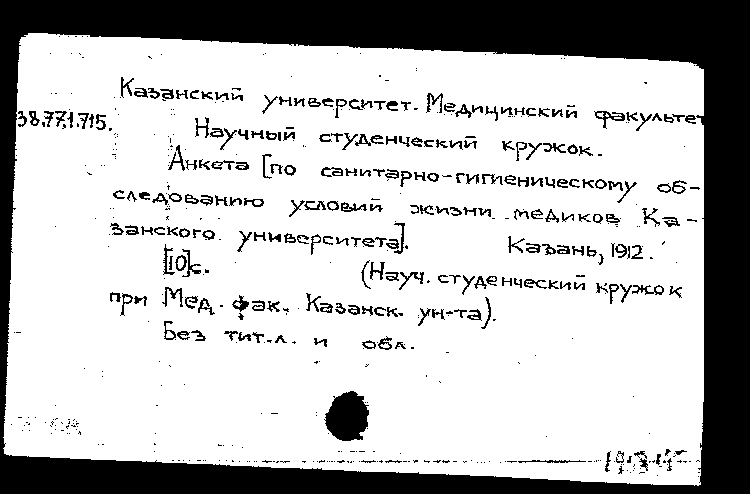 Казанский университет. Медицинский факультет
38.77.1.715.
Научный студенческий кружок.
Анкета [по санитарно-гигиеническому об-
следованию условий жизни медиков Ка-
занского университета]. Казань, 1912.
[10]с. (Науч. студенческий кружок
при Мед. фак. Казанск. ун-та).
Без тит.л. и обл.